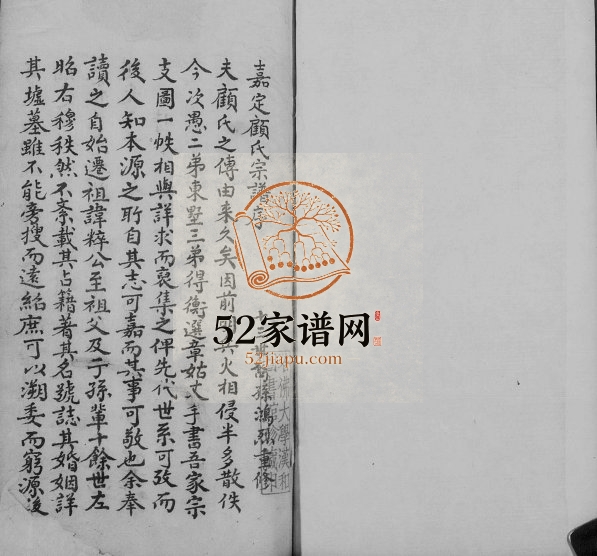 嘉定顧氏宗譜序
孫鴻烈重修
夫顧氏之傳由来久矣因前明兵火相侵半多散佚
今次愚二弟東墅三弟得衡選章姑丈手書吾家宗
支圖一帙相與詳求而裒集之俾先代世系可攷而
後人知本源之所自其志可嘉而其事可敬也余奉
讀之自始遷祖諱粹公至祖父及于孫輩十餘世左
昭右穆秩然不紊載其占籍著其名號誌其婚姻詳
其墟墓雖不能旁搜而遠紹庶可以溯委而窮源後
52家谱网
52jiapu.com